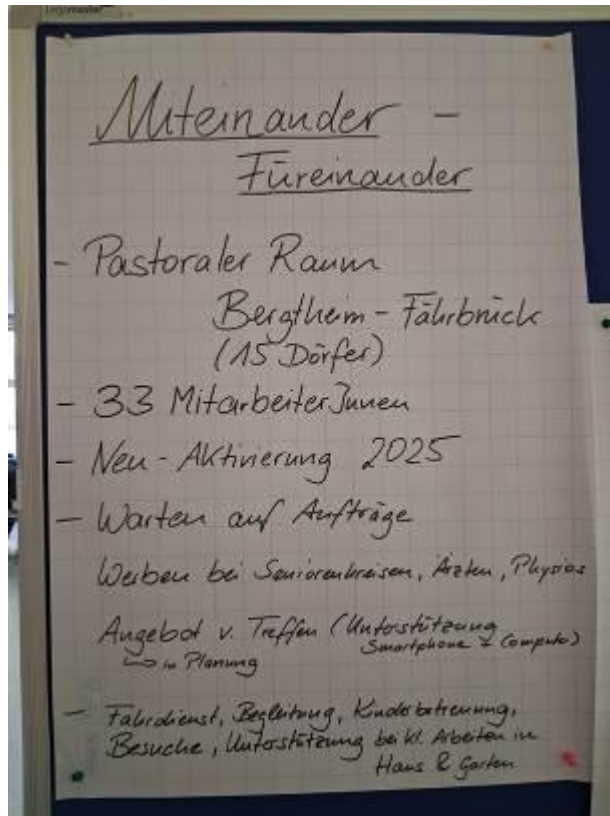 Legamaster
Miteinander -
Füreinander
- Pastoraler Raum
Bergtheim - Fährbrück
(15 Dörfer)
- 33 MitarbeiterInnen
- Neu - Aktivierung 2025
- Warten auf Aufträge
Werben bei Seniorenkreisen, Ärzten, Physios
Angebot v. Treffen (Unterstützung
Smartphone + Computer)
↳ in Planung
- Fahrdienst, Begleitung, Kinderbetreuung,
Besuche, Unterstützung bei kl. Arbeiten in
Haus & Garten